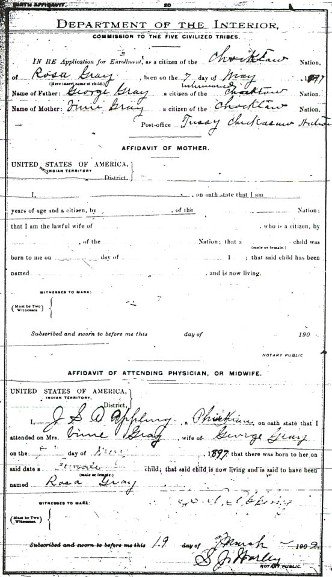 BIRTH AFFIDAVIT.
DEPARTMENT OF THE INTERIOR,
COMMISSION TO THE FIVE CIVILIZED TRIBES.
IN RE Application for Enrollment, as a citizen of the Choctaw Nation,
of Rosa Gray, born on the 7 day of May, 1897
Name of Father: George Gray a citizen of the Choctaw Nation.
Name of Mother: Vinie Gray a citizen of the Choctaw Nation.
Post-office Tussy Chickasaw Nation
AFFIDAVIT OF MOTHER.
UNITED STATES OF AMERICA,
INDIAN TERRITORY
District.
I, , on oath state that I am
years of age and a citizen, by , of the Nation;
that I am the lawful wife of , who is a citizen, by
, of the Nation; that a child was
(male or female)
born to me on day of , 1 ; that said child has been
named , and is now living.
WITNESSES TO MARK:
(Must be Two Witnesses)
Subscribed and sworn to before me this day of 190
NOTARY PUBLIC
AFFIDAVIT OF ATTENDING PHYSICIAN, OR MIDWIFE.
UNITED STATES OF AMERICA,
INDIAN TERRITORY
District.
I, J. S. a, on oath state that I
attended on Mrs. Vinie Gray, wife of George Gray
on the day of 1897 that there was born to her on
said date a female child; that said child is now living and is said to have been
named Rosa Gray
WITNESSES TO MARK:
(Must be Two Witnesses)
Subscribed and sworn to before me this 19 day of March 1902
NOTARY PUBLIC